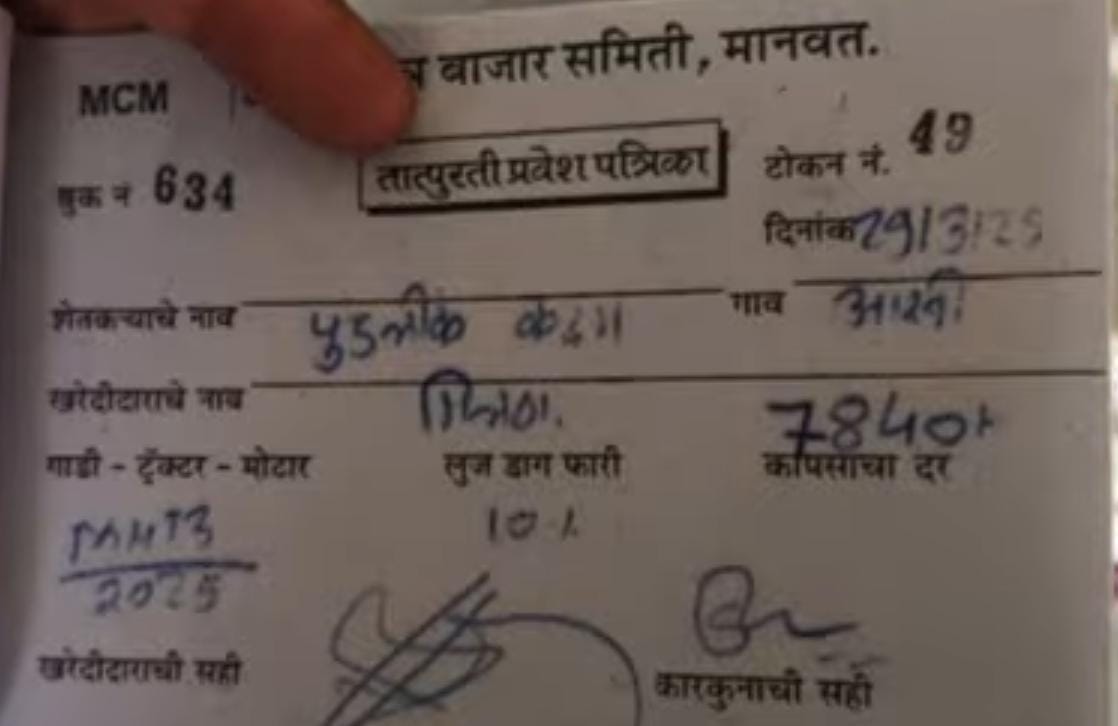 बाजार समिती, मानवत.
MCM
तात्पुरती प्रवेश पत्रिका
टोकन नं. 49
बुक नं 634
दिनांक 29/3/25
शेतकऱ्याचे नाव पुडलीक कदम गाव
खरेदीदाराचे नाव
7840/-
गाडी - ट्रॅक्टर - मोटार लुज डाग फारी कापसाचा दर
10%
2025
खरेदीदाराची सही कारकुनाची सही